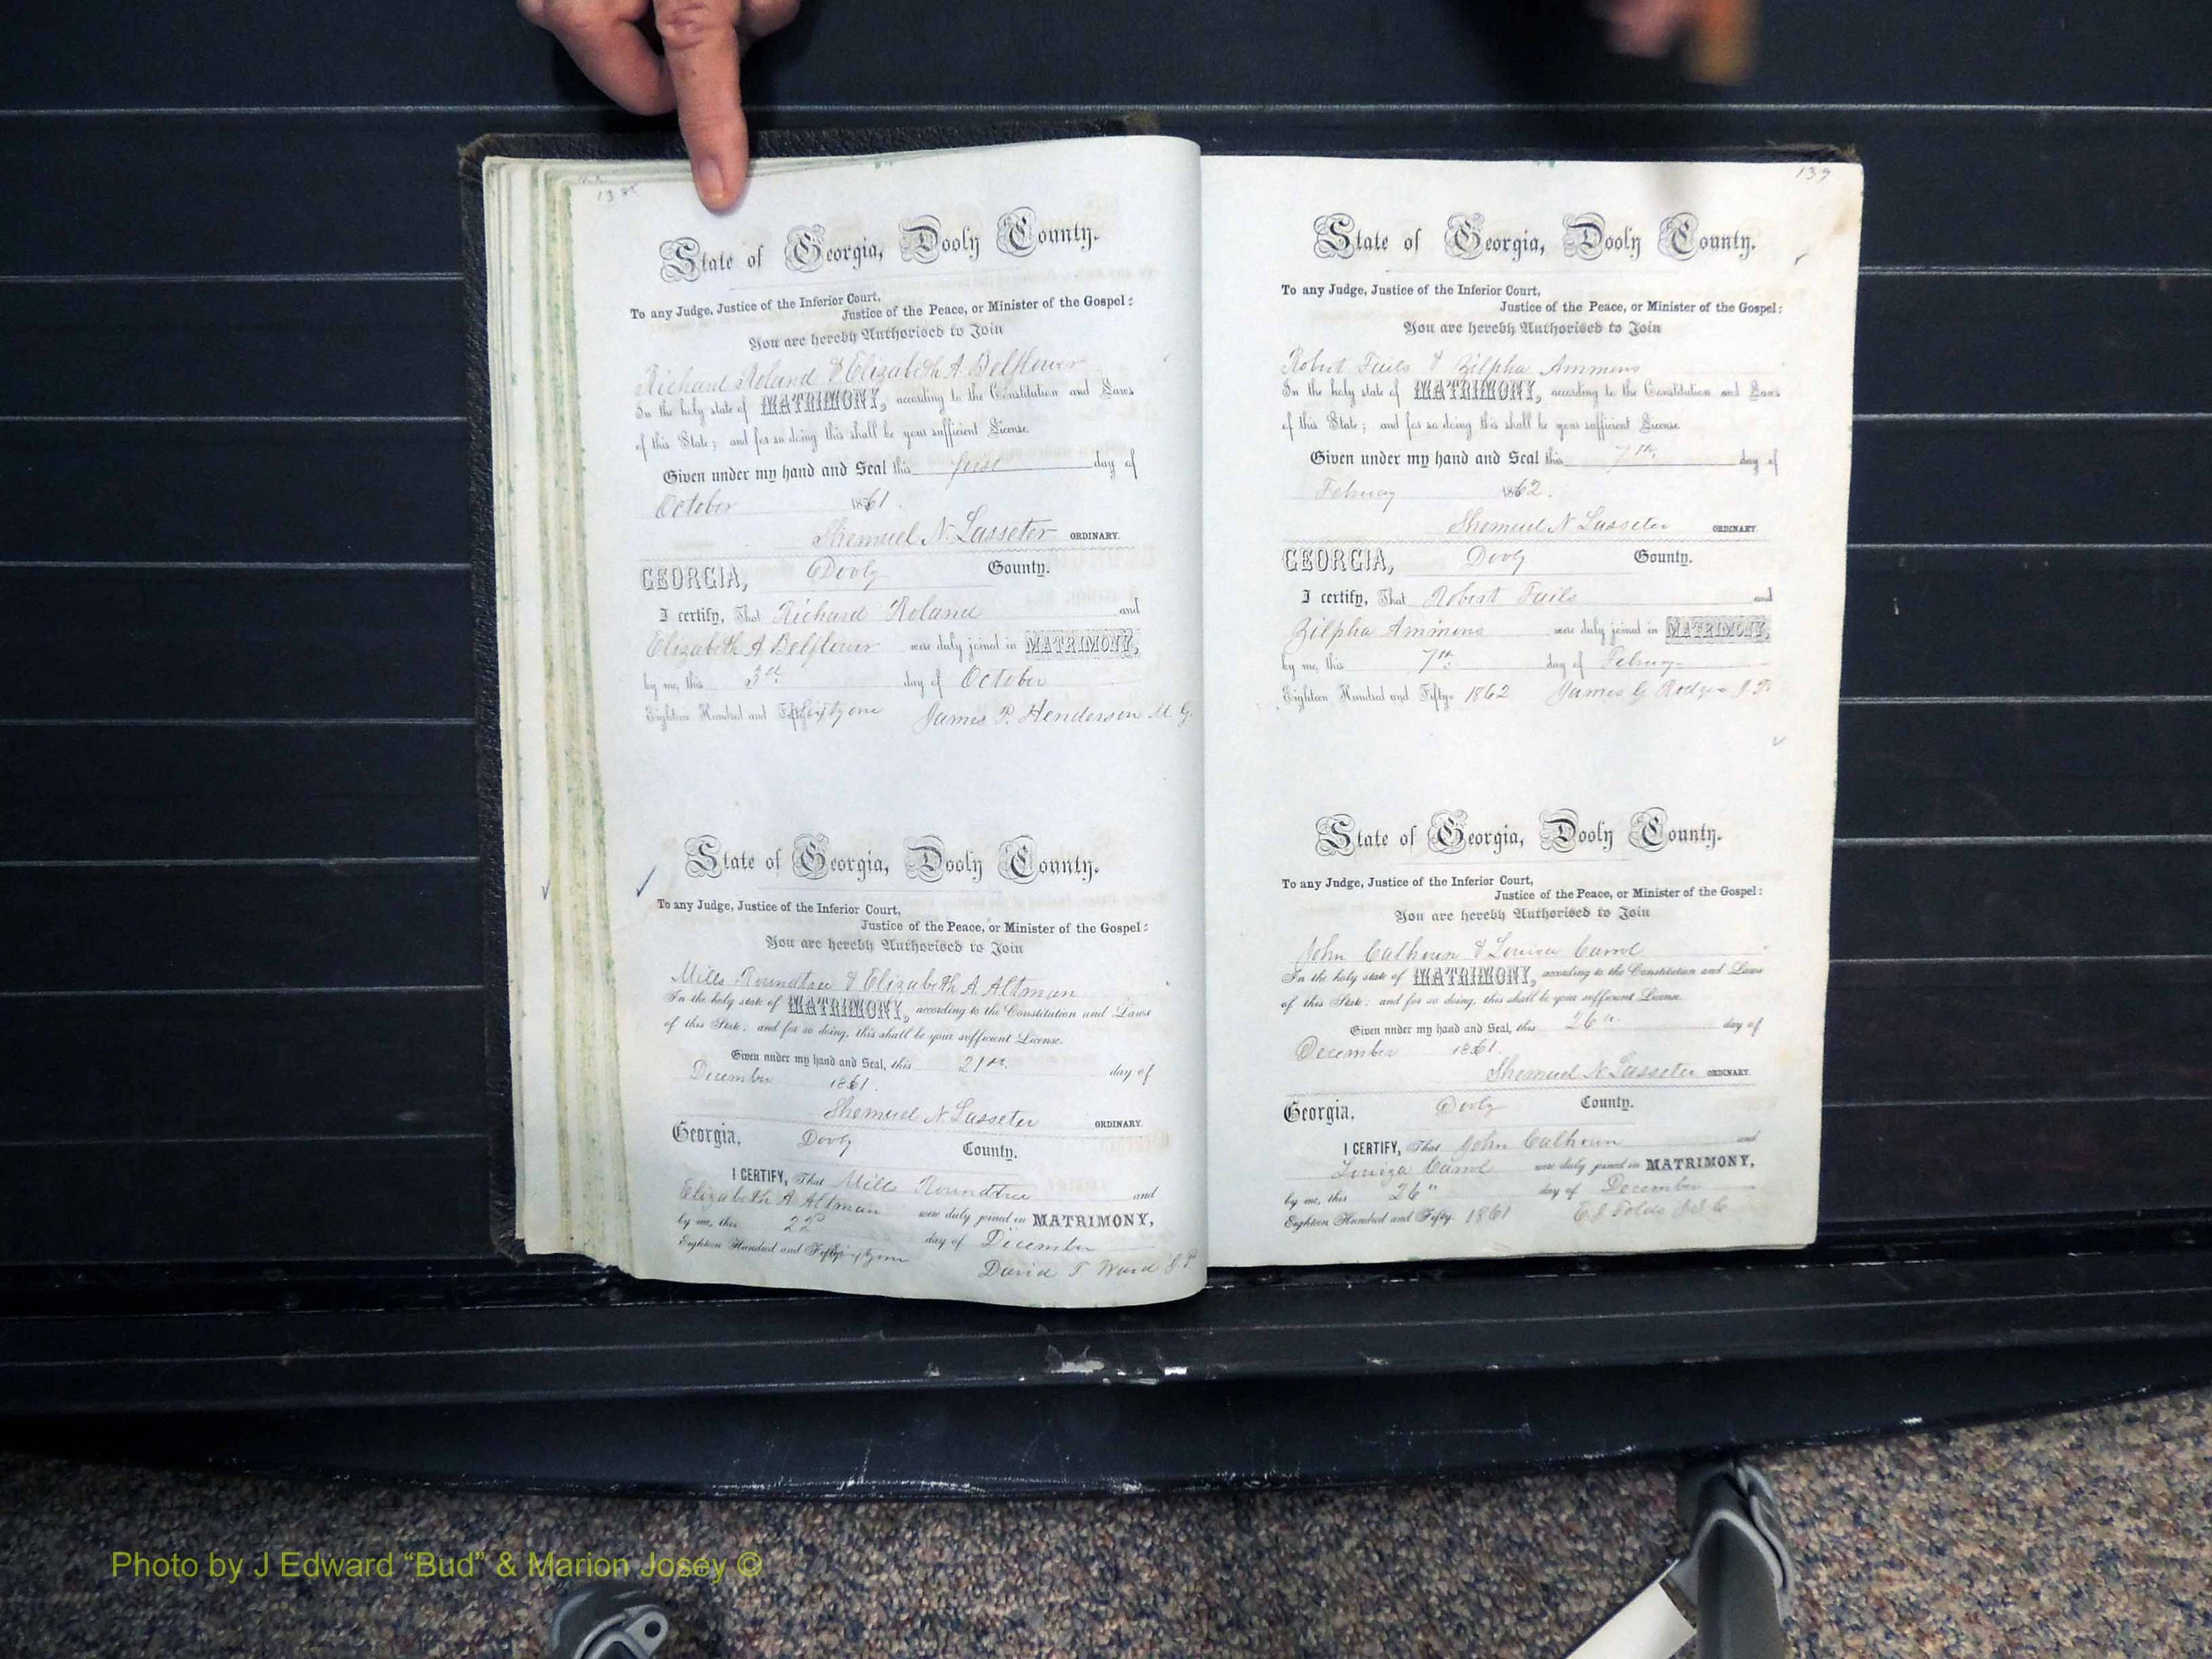 138
State of Georgia, Dooly County.
To any Judge, Justice of the Inferior Court,
Justice of the Peace, or Minister of the Gospel:
You are hereby Authorised to Join
Richard Roland & Elizabeth A Belflower
In the holy state of MATRIMONY, according to the Constitution and Laws
of this State; and for so doing this shall be your sufficient License.
Given under my hand and Seal this first day of
October 1861.
Shemuel N. Lasseter ORDINARY.
GEORGIA, Dooly County.
I certify, That Richard Roland and
Elizabeth A Belflower were duly joined in MATRIMONY,
by me, this 3rd day of October
Eighteen Hundred and Sixty one James P. Henderson M. G.
State of Georgia, Dooly County.
To any Judge, Justice of the Inferior Court,
Justice of the Peace, or Minister of the Gospel:
You are hereby Authorised to Join
Mills Roundtree & Elizabeth A Altman
In the holy state of MATRIMONY, according to the Constitution and Laws
of this State: and for so doing, this shall be your sufficient License.
Given under my hand and Seal, this 21st. day of
December 1861.
Shemuel N Lasseter ORDINARY.
Georgia, Dooly County.
I CERTIFY, That Mills Roundtree and
Elizabeth A Altman were duly joined in MATRIMONY,
by me, this 22 day of December
Eighteen Hundred and Fifty
David T Ward J P
139
State of Georgia, Dooly County.
To any Judge, Justice of the Inferior Court,
Justice of the Peace, or Minister of the Gospel:
You are hereby Authorised to Join
Robert Fuils & Zilpha Ammons
In the holy state of MATRIMONY, according to the Constitution and Laws
of this State; and for so doing this shall be your sufficient License
Given under my hand and Seal this 7th, day of
Febuary 1862.
Shemuel N Lasseter ORDINARY.
GEORGIA, Dooly County.
I certify, That Robert Fuils and
Zilpha Ammons were duly joined in MATRIMONY,
by me, this 7th day of Febuary
Eighteen Hundred and Fifty- 1862 James G Rodges J P.
State of Georgia, Dooly County.
To any Judge, Justice of the Inferior Court,
Justice of the Peace, or Minister of the Gospel:
You are hereby Authorised to Join
John Calhoun & Louisa Carrol
In the holy state of MATRIMONY, according to the Constitution and Laws
of this State: and for so doing, this shall be your sufficient License.
Given under my hand and Seal, this 26th day of
December 1861.
Shemuel N Lasseter ORDINARY.
Georgia, Dooly County.
I CERTIFY, That John Calhoun and
Louiza Carrol were duly joined in MATRIMONY,
by me, this 26" day of December
Eighteen Hundred and Fifty. 1861
Photo by J Edward “Bud” & Marion Josey ©